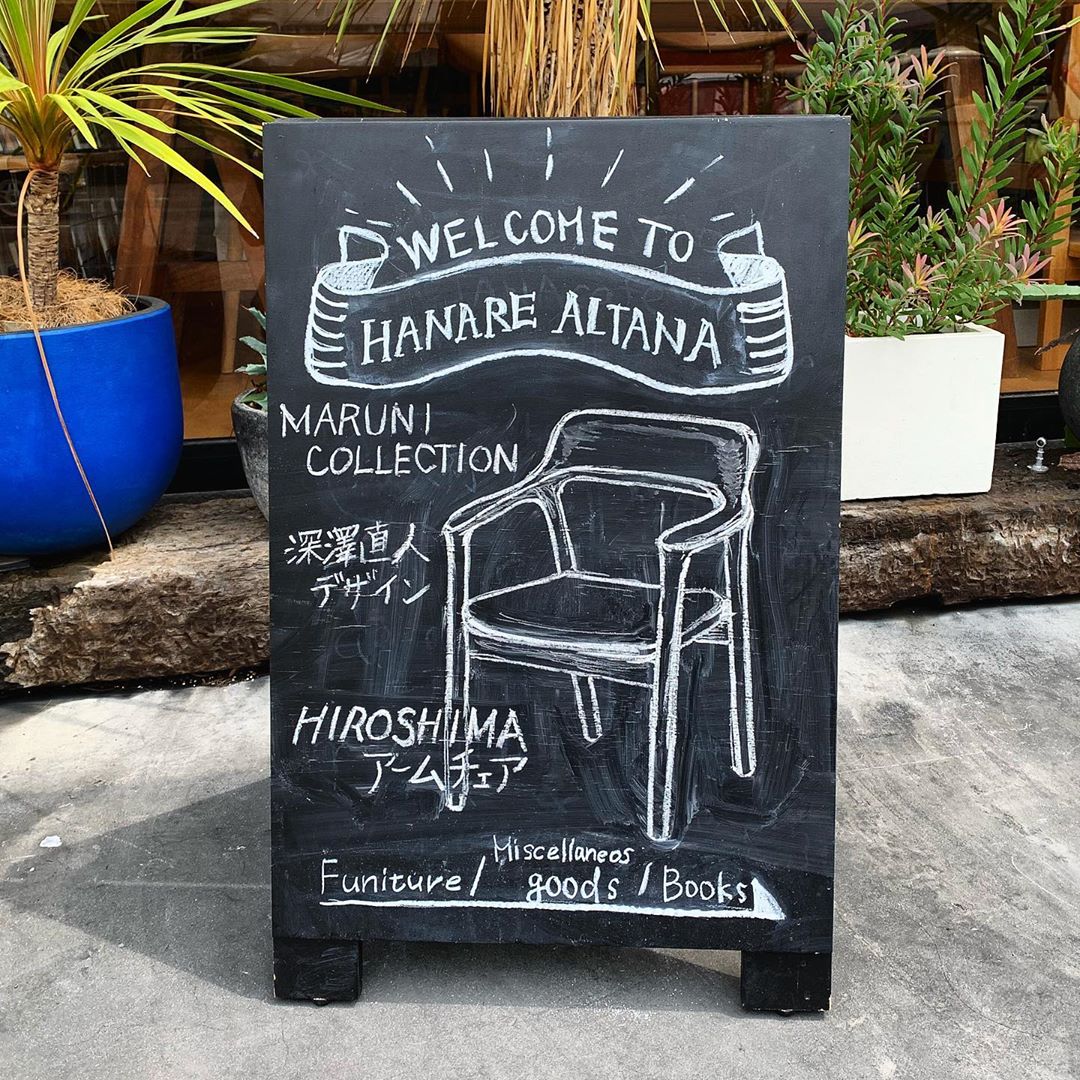 WELCOME TO
HANARE ALTANA
MARUNI
COLLECTION
深澤直人
デザイン
HIROSHIMA
アームチェア
Miscellaneos
Funiture / goods / Books